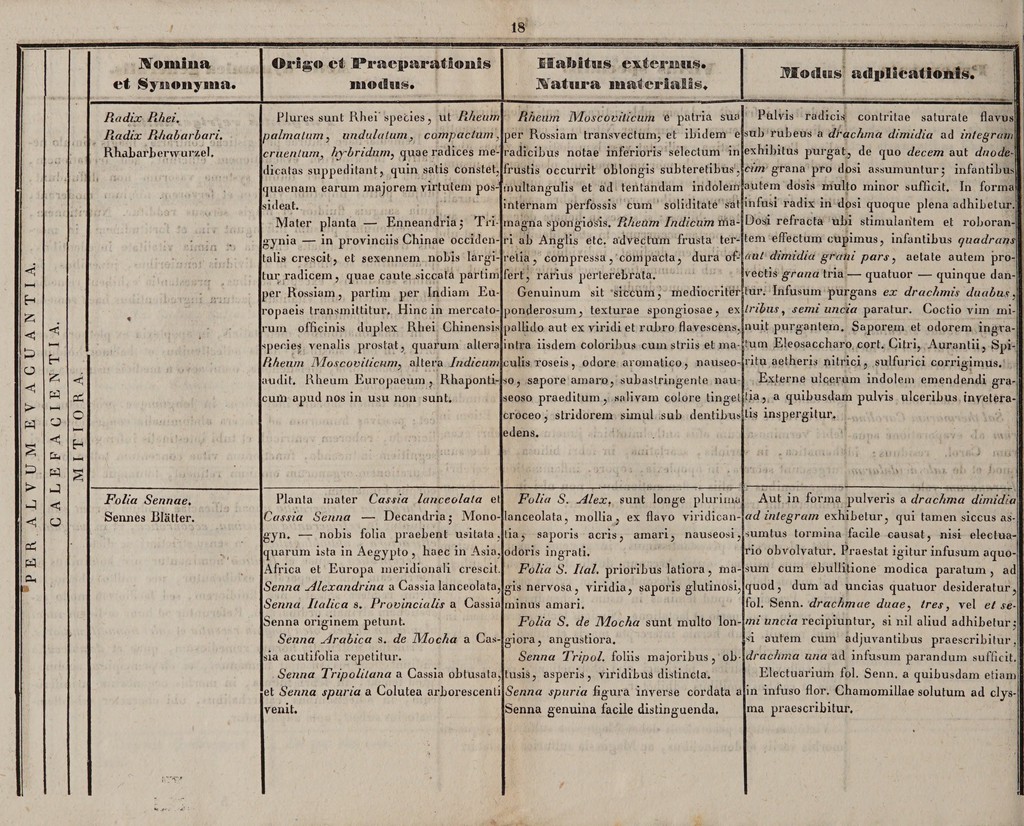 18
PER ALVUM EVACUANTIA.
CALEFACIENTIA.
MITIORA.
Nomina
et Synonyma.
Origo et Praeparationis
modus.
Habitus externus.
Natura materialis.
Modus adplicationis.
Radix Rhei.
Radix Rhabarbari.
Rhabarberwurzel.
Plures sunt Rhei species, ut Rheum
palmatum, undulatum, compactum,
cruentum, hybridum, quae radices me-
dicatas suppeditant, quin satis constet,
quaenam earum majorem virtutem pos-
sideat.
Mater planta — Enneandria; Tri-
gynia — in provinciis Chinae occiden-
talis crescit, et sexennem nobis largi-
tur radicem, quae caute siccata partim
per Rossiam, partim per Indiam Eu-
ropaeis transmittitur. Hinc in mercato-
rum officinis duplex Rhei Chinensis
species venalis prostat, quarum altera
Rheum Moscoviticum, altera Indicum
audit. Rheum Europaeum, Rhaponti-
cum apud nos in usu non sunt.
Rheum Moscoviticum e patria sua
per Rossiam transvectum, et ibidem e
radicibus notae inferioris selectum in
frustis occurrit oblongis subteretibus,
multangulis et ad tentandam indolem
internam perfossis cum soliditate sat
magna spongiosis. Rheum Indicum ma-
ri ab Anglis etc. advectum frusta ter-
relia, compressa, compacta, dura of-
fert, rarius perterebrata.
Genuinum sit siccum, mediocriter
ponderosum, texturae spongiosae, ex
pallido aut ex viridi et rubro flavescens,
intra iisdem coloribus cum striis et ma-
culis roseis, odore aromatico, nauseo-
so, sapore amaro, subastringente nau-
seoso praeditum, salivam colore tinget
croceo, stridorem simul sub dentibus
edens.
Pulvis radicis contritae saturate flavus
sub rubeus a drachma dimidia ad integram
exhibitus purgat, de quo decem aut duode-
cim grana pro dosi assumuntur; infantibus
autem dosis multo minor sufficit. In forma
infusi radix in dosi quoque plena adhibetur.
Dosi refracta ubi stimulantem et roboran-
tem effectum cupimus, infantibus quadrans
aut dimidia grani pars, aetate autem pro-
vectis grana tria — quatuor — quinque dan-
tur. Infusum purgans ex drachmis duabus,
tribus, semi uncia paratur. Coctio vim mi-
nuit purgantem. Saporem et odorem ingra-
tum Eleosaccharo cort. Citri, Aurantii, Spi-
ritu aetheris nitrici, sulfurici corrigimus.
Externe ulcerum indolem emendendi gra-
tia, a quibusdam pulvis ulceribus invetera-
tis inspergitur.
Folia Sennae.
Sennes Blätter.
Planta mater Cassia lanceolata et
Cassia Senna — Decandria; Mono-
gyn. — nobis folia praebent usitata,
quarum ista in Aegypto, haec in Asia,
Africa et Europa meridionali crescit.
Senna Alexandrina a Cassia lanceolata,
Senna Italica s. Provincialis a Cassia
Senna originem petunt.
Senna Arabica s. de Mocha a Cas-
sia acutifolia repetitur.
Senna Tripolitana a Cassia obtusata,
et Senna spuria a Colutea arborescenti
venit.
Folia S. Alex. sunt longe plurima
lanceolata, mollia, ex flavo viridican-
tia, saporis acris, amari, nauseosi,
odoris ingrati.
Folia S. Ital. prioribus latiora, ma-
gis nervosa, viridia, saporis glutinosi,
minus amari.
Folia S. de Mocha sunt multo lon-
giora, angustiora.
Senna Tripol. foliis majoribus, ob-
tusis, asperis, viridibus distincta.
Senna spuria figura inverse cordata a
Senna genuina facile distinguenda.
Aut in forma pulveris a drachma dimidia
ad integram exhibetur, qui tamen siccus as-
sumtus tormina facile causat, nisi electua-
rio obvolvatur. Praestat igitur infusum aquo-
sum cum ebullitione modica paratum, ad
quod, dum ad uncias quatuor desideratur,
fol. Senn. drachmae duae, tres, vel et se-
mi uncia recipiuntur, si nil aliud adhibetur;
si autem cum adjuvantibus praescribitur,
drachma una ad infusum parandum sufficit.
Electuarium fol. Senn. a quibusdam etiam
in infuso flor. Chamomillae solutum ad clys-
ma praescribitur.